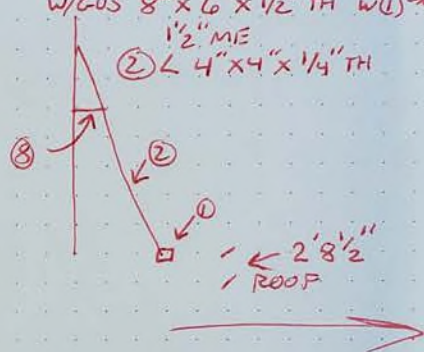 W/GUS 8 X 6 X 1/2 TH W(1)
1 1/2" ME
② < 4" X 4" X 1/4" TH
⑧
②
①
2' 8 1/2"
ROOF